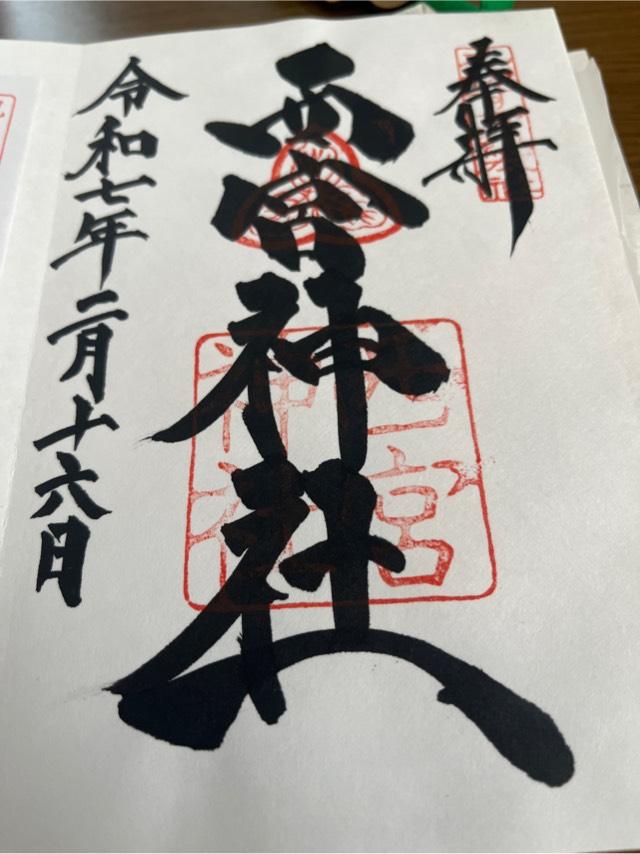 奉拝
西宮神社
西宮
神社
令和七年二月十六日